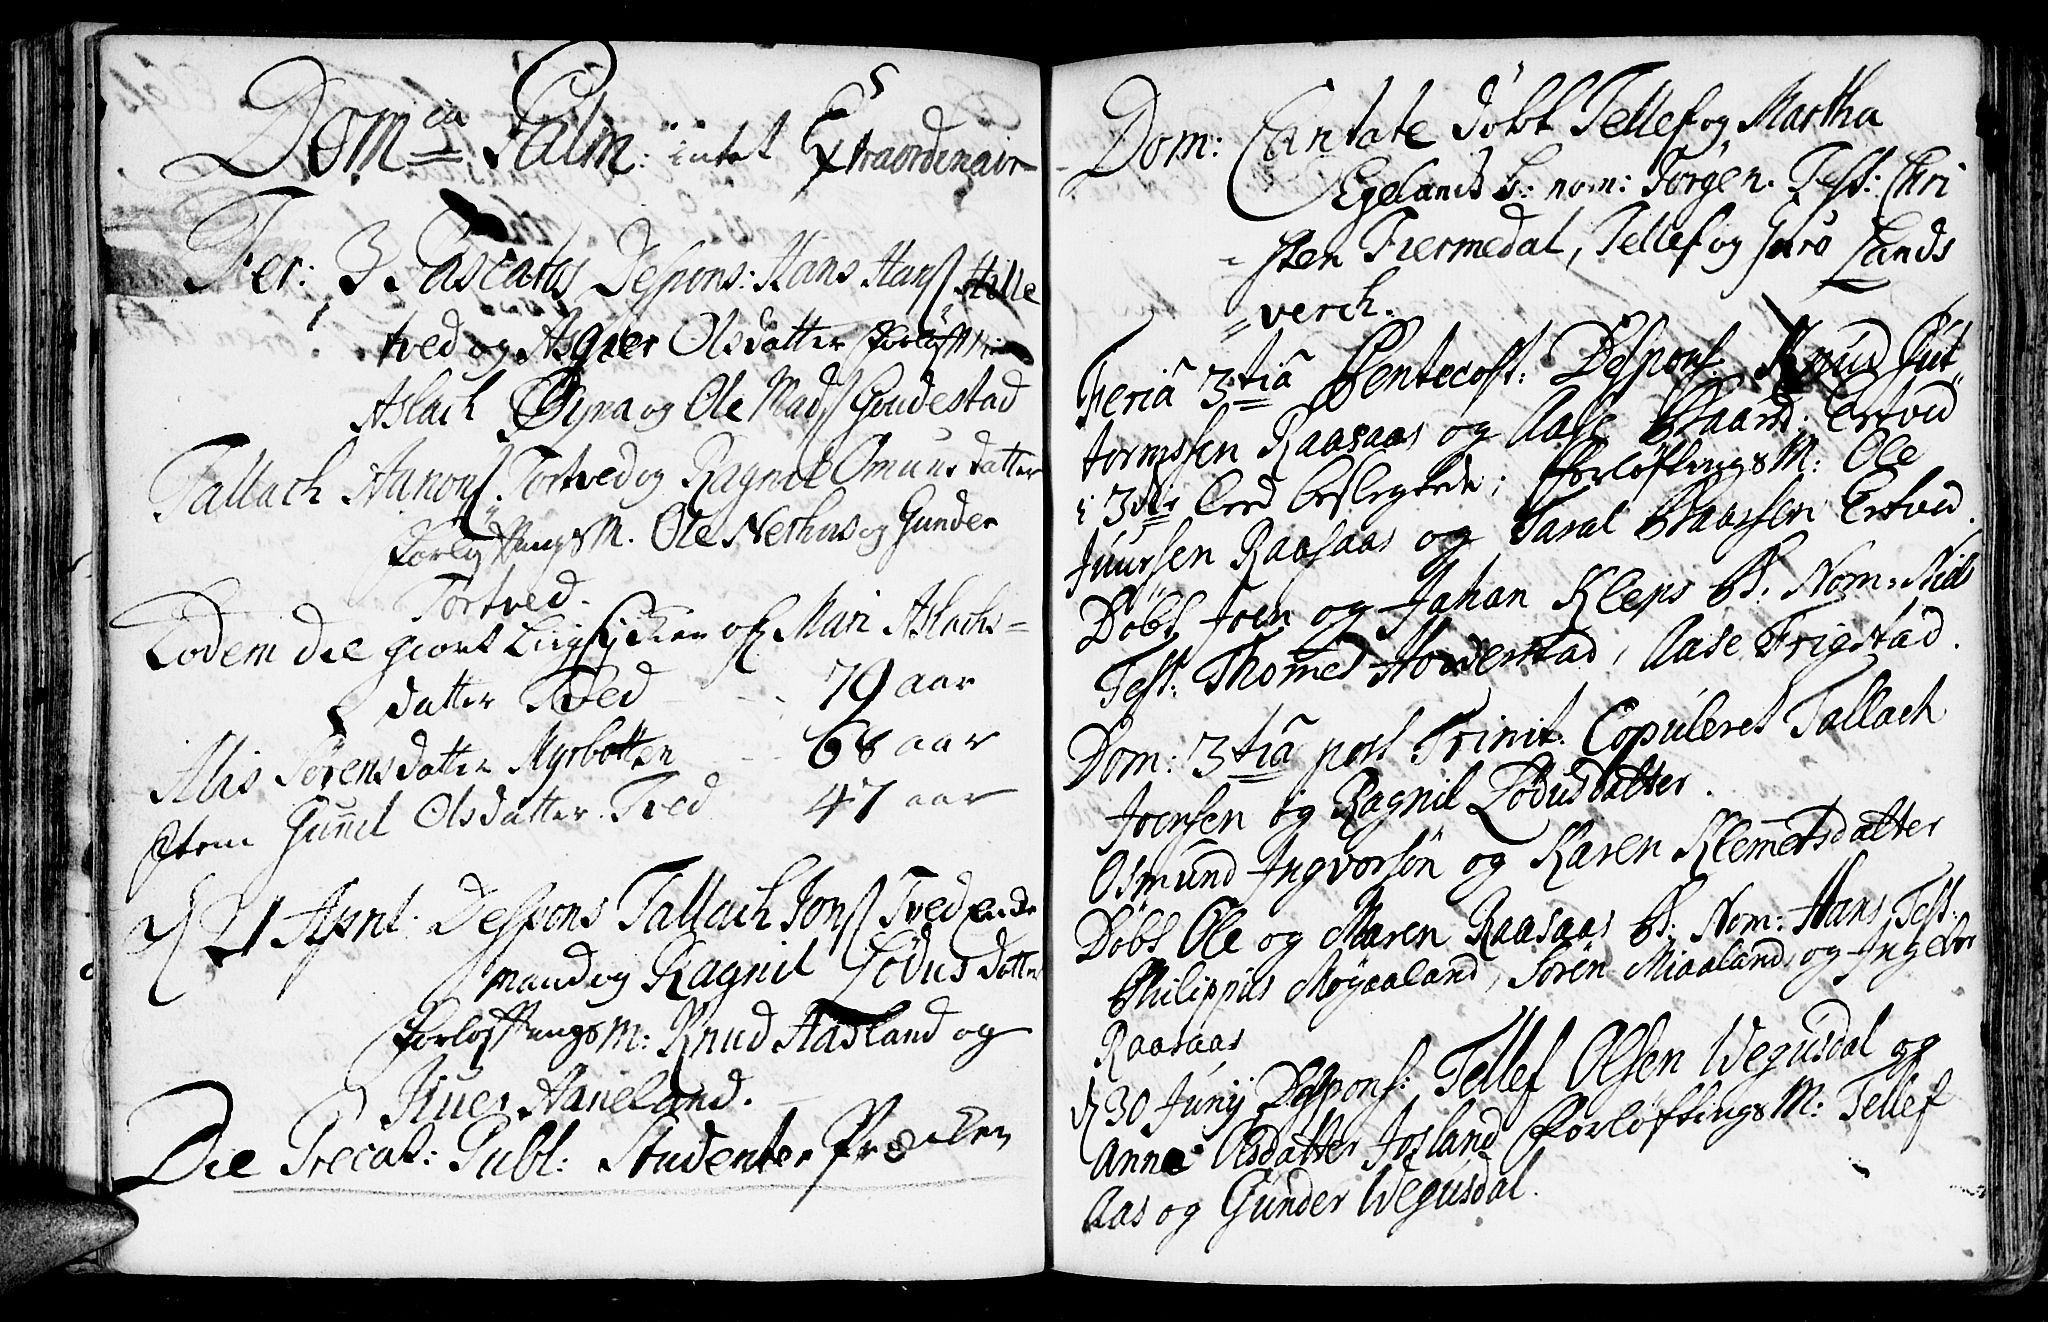 Dom^ca Palm: intet Extraordinair
Fer: 3 Pascatos Despons: Hans Hans Hille
tved og Asgier Olsdatter
Aslach Øyna og Ole Mads Goudestad
Tallach Aanons Tortved og Ragnil Omunsdatter
Forløftnings M. Ole Nethus og Gunder
Tortved.
Eodem Die giort Liigsticker of Mari Aslachs=
datter Tved - - 79 aar
Alis Sørensdatter Myrbotten - - 68 aar
Item Gunnil Olsdatter Tved 47 aar
d 21 April. Despons Tallach Jons Tved Encke
mand og Ragnil Lodusdatter
Forløftnings M: Knud Aasland og
Siver Haneland.
Die Precat: Publ: Studenten Prædiken
Dom: Cantate døbt Tellef og Martha
Egelands B: nom: Jørgen. Test: Chri
-sten Fiermedal, Tellef og Siro Lands
=verch.
Feria 3tia Pentecost: Despons. Knud Gut
tormssen Raasaas og Aase Baards. Ertved
i 3die Leed beslegtede; Forløftnings M: Ole
Juursen Raasaas og Taral Baarsen Ertved.
Døbt Joen og Johan Kleps B. Nom: Niels
Test: Thomes Hoverstad, Aase Frigstad.
Dom: 3tia post Trinit: Copuleret Tallach
Joensen og Ragnil Lodusdatter.
Osmund Ingvorsøn og Karen Klemetsdatter
Døbt Ole og Maren Raasaas B. Nom: Hans, Test.
Philippus Møyaaland, Søren Miaaland og Ingebor
Raasaas
d 30 Junij Despons: Tellef Olsen Wegusdal og
Anne Olsdatter Josland Forløftnings M: Tellef
Aas og Gunder Wegusdal.